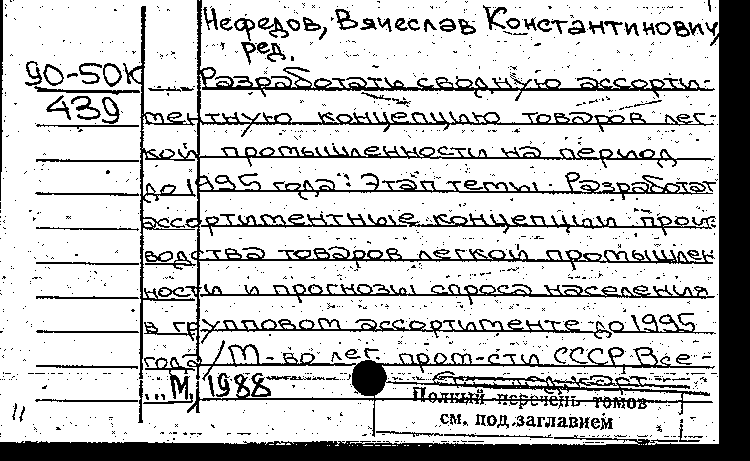 Нефедов, Вячеслав Константинович,
ред.
90-50К
439
Разработати сводную ассорти-
ментную концепцию товаров лег-
кой промышленности на период
до 1995 года: Этап темы: Разработат
ассортиментные концепции произ-
водства товаров легкой промышлен
ности и прогнозы спроса населения
в групповом ассортименте до 1995
года / М-во лег. пром-сти СССР, Все-
...М, 1988
Полный перечень томов
см. под заглавием
11